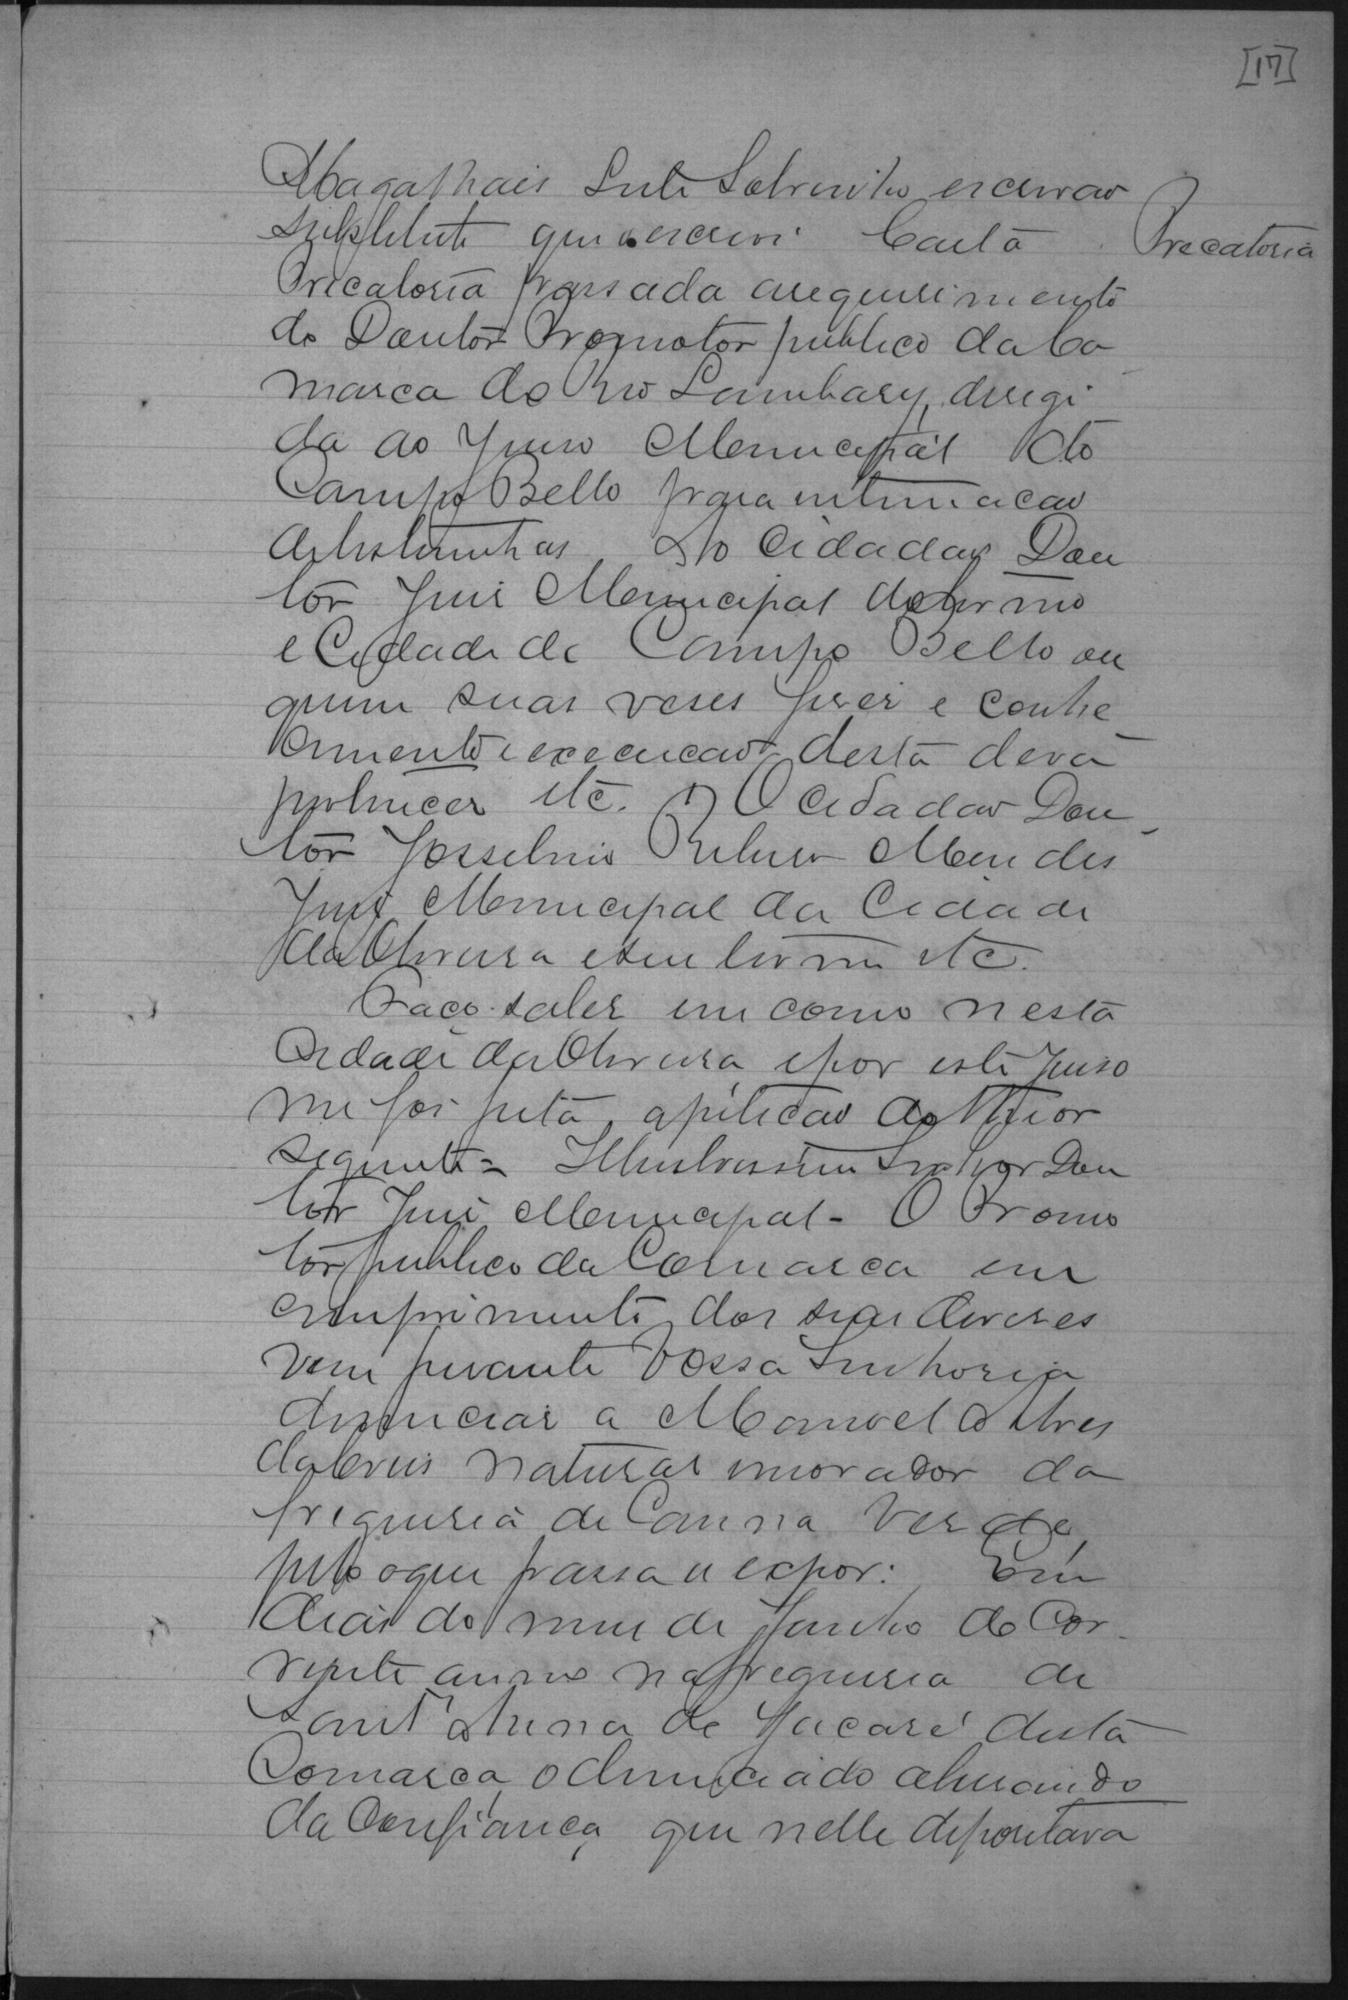 [17]
Magalhais Leite Sobrinho escrivao
substituto que o escrevi Carta
Precatoria
Precatoria passada arequerimento
do Doutor Promotor publico da Co
marca do Rio Lambary, dirigi
da ao Juiso Municipal do
Campo Bello para intimacao
detestimunhas Ao Cidadao Dou
tor Juis Municipal dotermo
e Cidade de Campo Bello ou
quem suas veses fiser e conhe
cimento e execucao desta deva
pertencer etc. O Cidadao Dou
tor Josselino Ribeiro Mendes
Juis Municipal da Cidade
da Oliveira eseu termo etc.
Faço saber em como nesta
Cidade da Oliveira, epor este Juiso
me foi feita apeticao do theor
seguinte = Illustrissimo Senhor Dou
tor Juis Municipal - O Promo
tor publico da Comarca em
cumprimento dos seus deveres
vem perante Vossa Senhoria
denunciar a Manoel Alves
da Crus natural morador da
freguesia de Canna Verde,
pelo oque passa a expor: Em
dias do mes de Junho do Cor
rente anno na freguesia de
Sant'Anna de Jacaré desta
Comarca, o denunciado abusando
da Confiança que nelle depositava